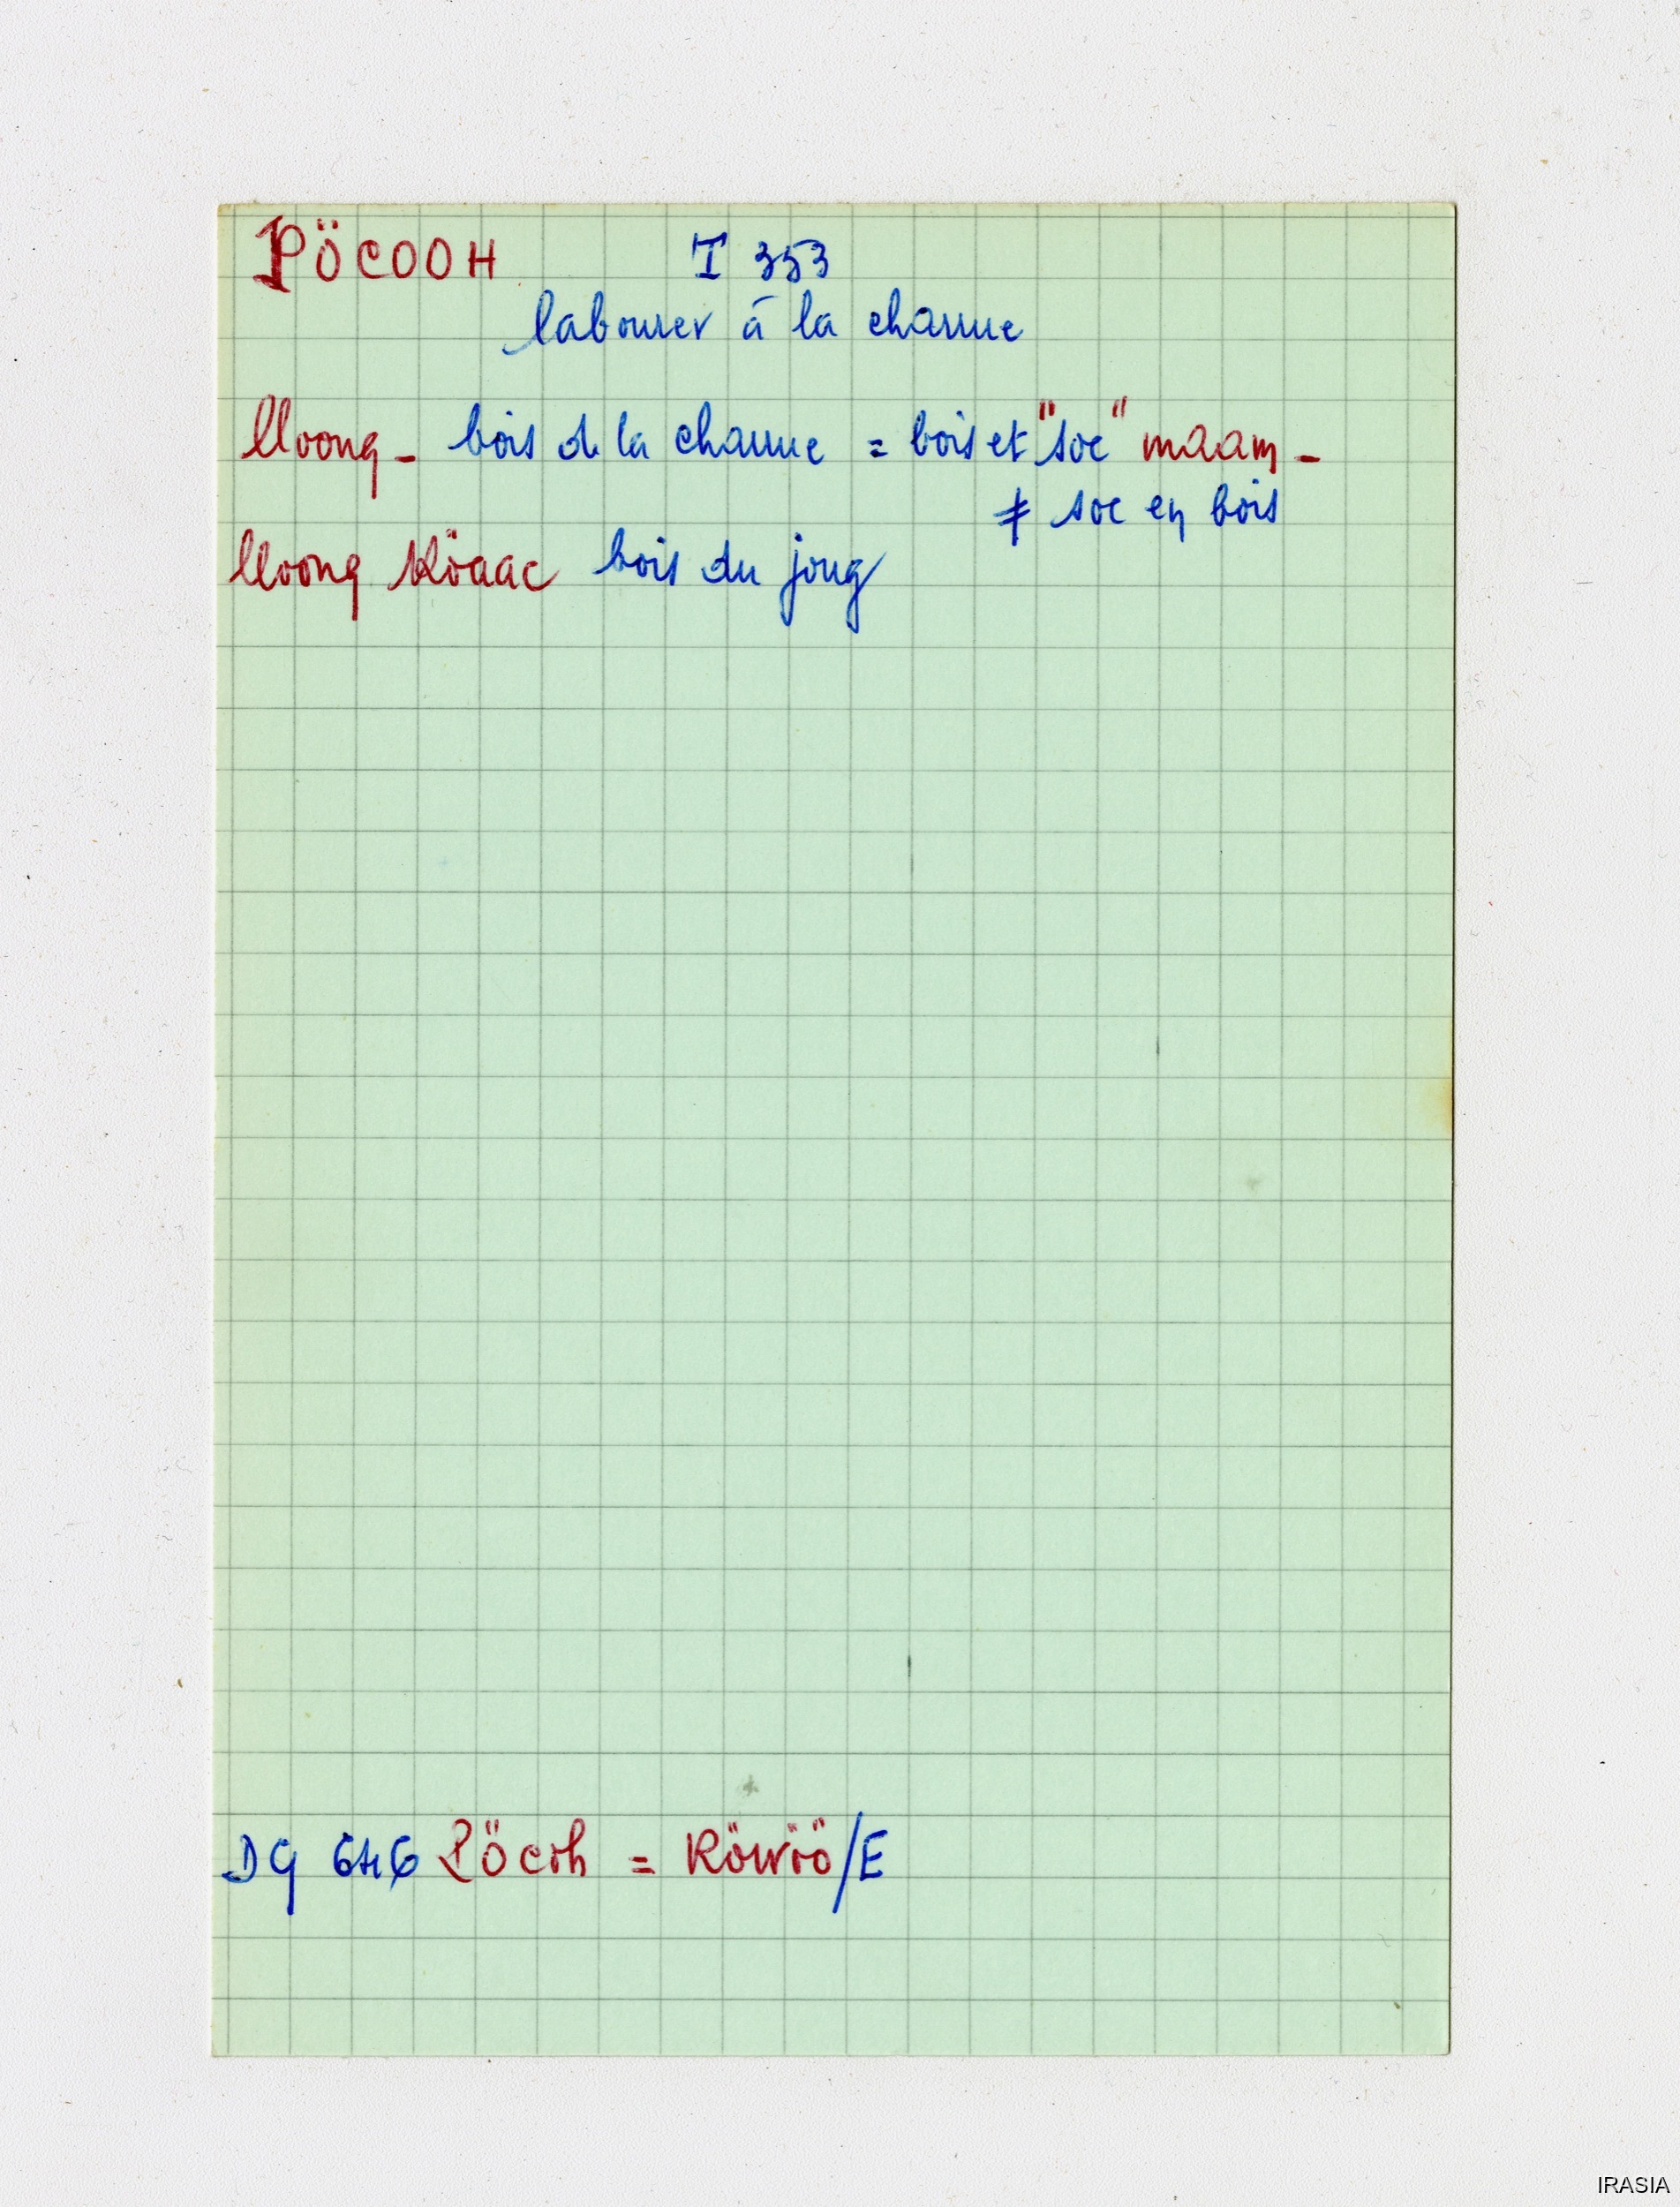 PÖCOOH I 353
labourer à la charrue
lloong - bois de la charrue = bois et "soc" maam -
≠ soc en bois
lloong Köaac bois du joug
DG 646 Pöcoh = Röwöö/E
IRASIA